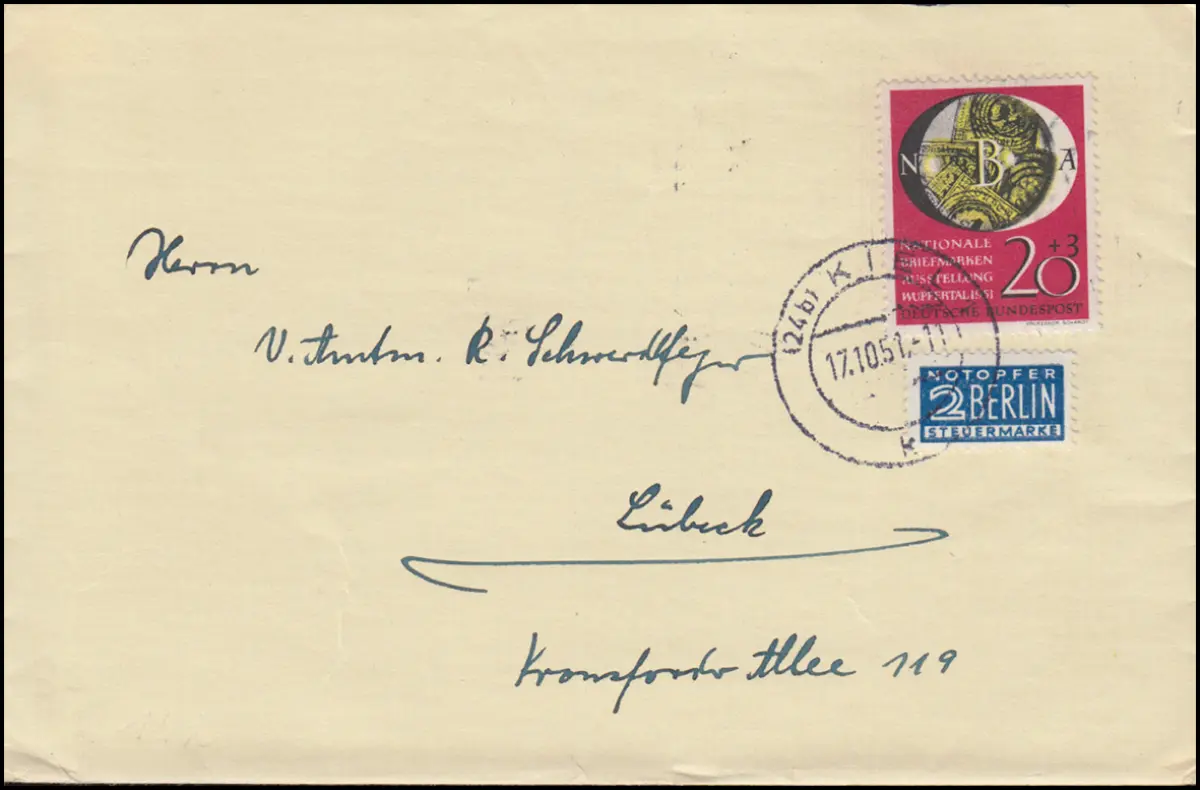 N B A
NATIONALE
BRIEFMARKEN
AUSSTELLUNG
WUPPERTAL 1951
20 +3
DEUTSCHE BUNDESPOST
(24b) KIEL
17.10.51.-11
k
NOTOPFER
2 BERLIN
STEUERMARKE
Herrn
V. Amtm. R. Schwerdtfeger
Lübeck
Kronsforder Allee 119